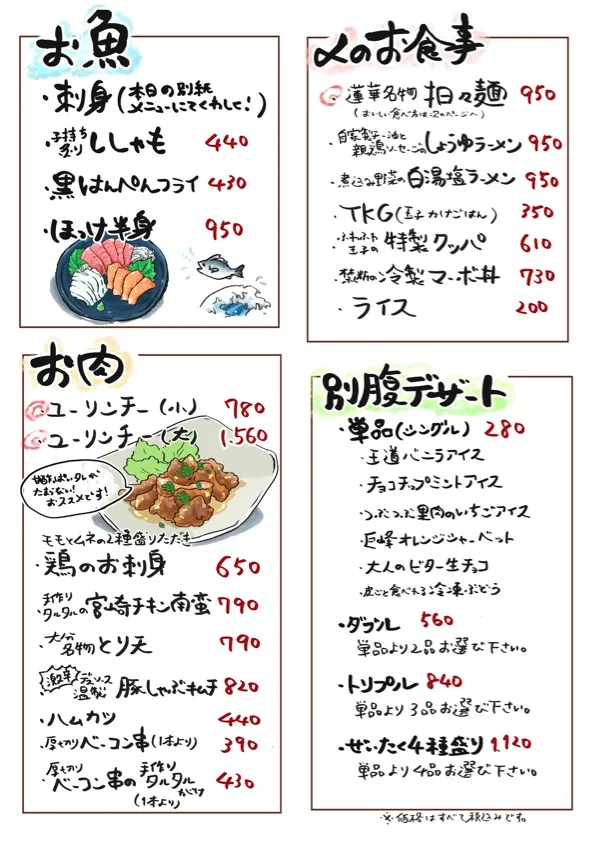 お魚
・刺身(本日の別紙
メニューにてくわしく!)
・子持ち
炙り ししゃも 440
・黒はんぺんフライ 430
・ほっけ半身 950
お肉
・ユーリンチー(小) 780
・ユーリンチー(大) 1,560
甘ずっぱいタレが
たまらない!
おススメです!
モモとムネの2種盛りたたき
・鶏のお刺身 650
・手作り
タルタルの宮崎チキン南蛮 790
・大分
名物とり天 790
・激辛
温製 豚しゃぶキムチ 820
・ハムカツ 440
・厚切りベーコン串(1本より) 390
・厚切り
ベーコン串の手作り
タルタル
がけ
(1本より) 430
〆のお食事
・蓮華名物 担々麺 950
(おいしい食べ方は次のページへ)
・自家製チー油と
親鶏ソーセージのしょうゆラーメン 950
・煮込み野菜の白湯塩ラーメン 950
・TKG(玉子かけごはん) 350
・ふわふわ
玉子の特製クッパ 610
・禁断の冷製マーボ丼 730
・ライス 200
別腹デザート
・単品(シングル) 280
・王道バニラアイス
・チョコチップミントアイス
・つぶつぶ果肉のいちごアイス
・巨峰オレンジシャーベット
・大人のビター生チョコ
・皮ごと食べれる冷凍ぶどう
・ダブル 560
単品より2品お選び下さい。
・トリプル 840
単品より3品お選び下さい。
・ぜいたく4種盛り 1,120
単品より4品お選び下さい。
※価格はすべて税込みです。